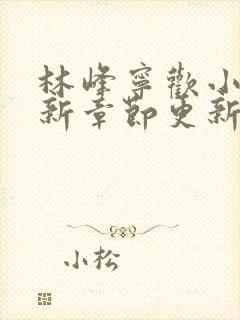 林峰寧歡小
新章節更新
小松